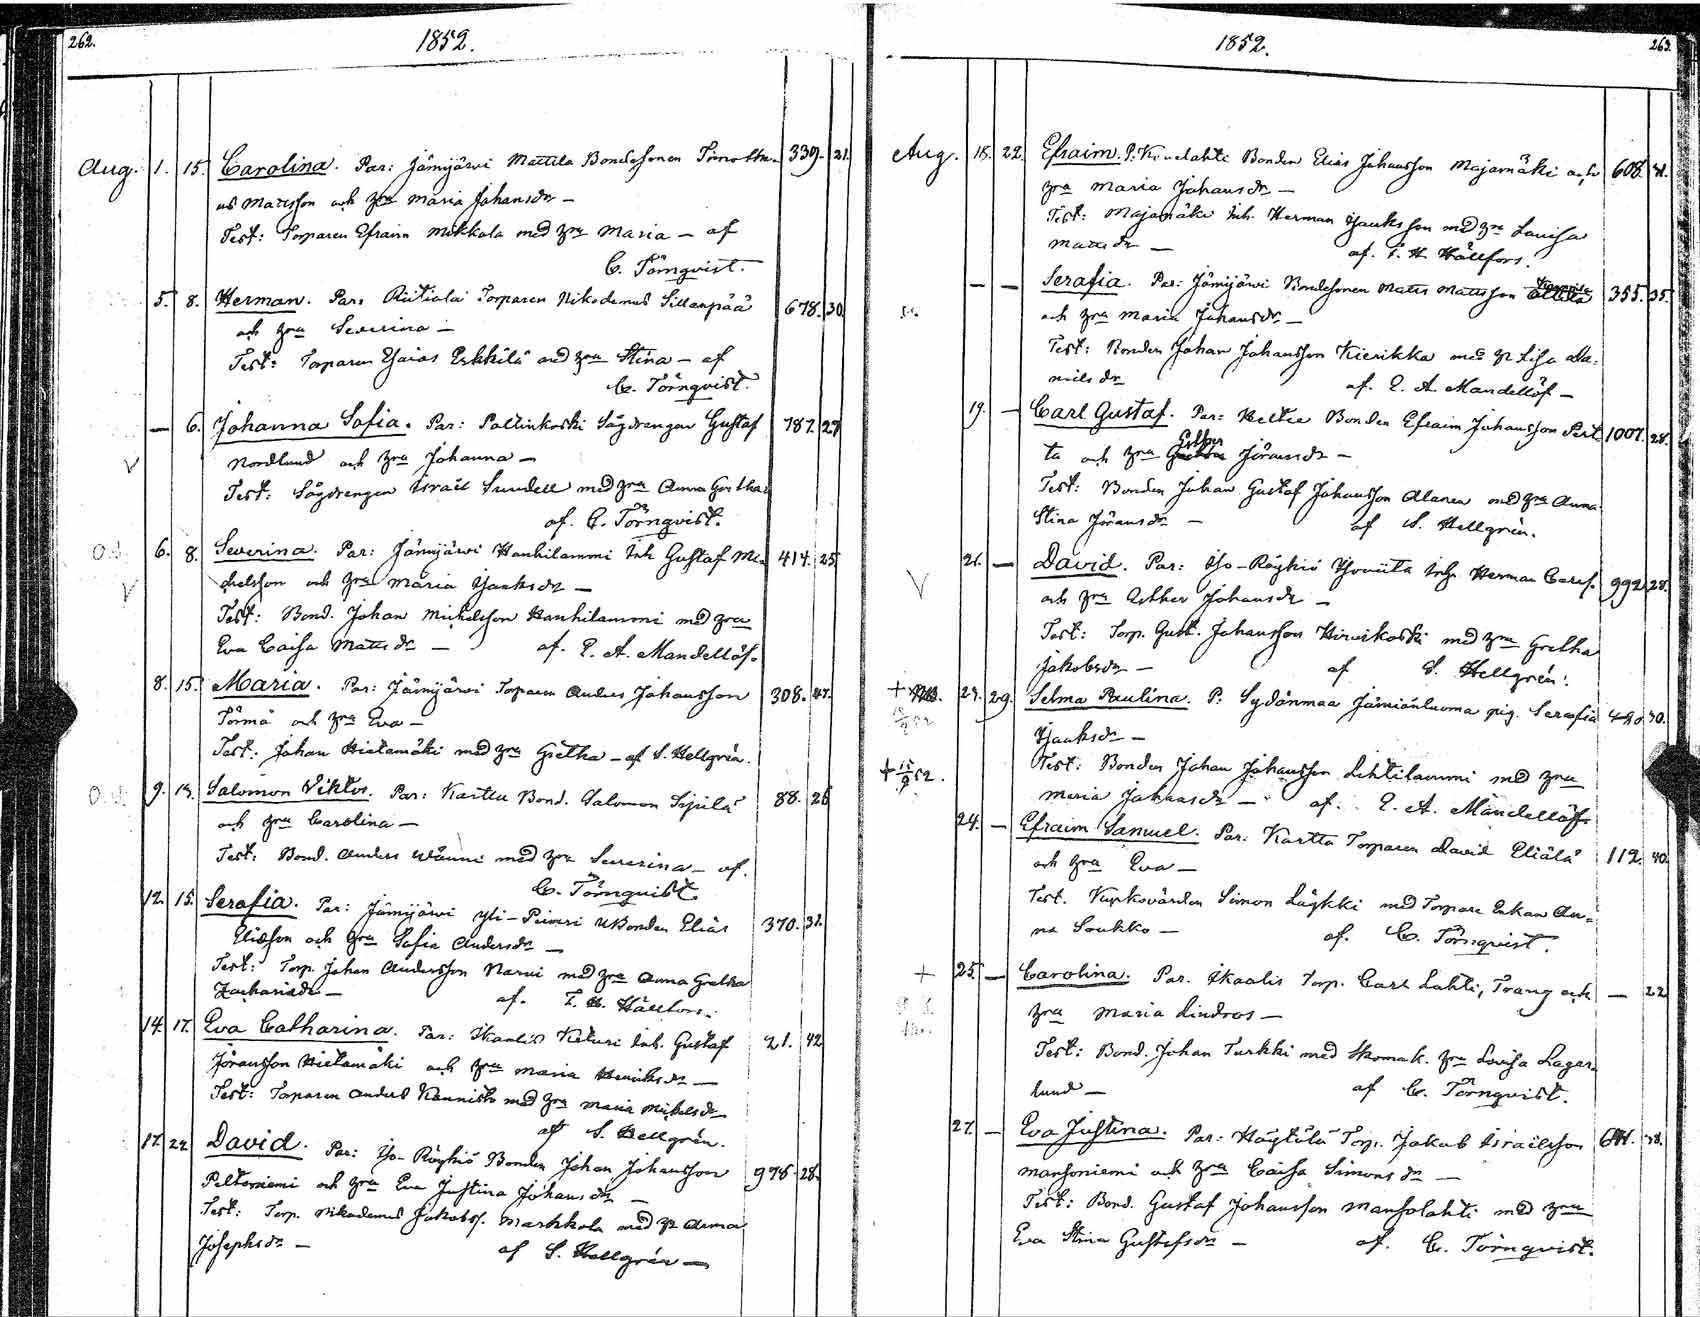 262.
1852.
Aug. 1. 15. Carolina. Par: Jämijärvi Mattila Bondesonen Timothe- 339. 21.
us Mattsson och hra Maria Johansdr —
Test: Torparen Efraim Mokkala med hra Maria — af
C. Törnqvist.
5. 8. Herman. Par: Riitiala Torparen Nikodemus Sillanpää 678. 30
och hra Severina —
Test: Torparen Esaias Erkkilä med hra Stina — af
C. Törnqvist.
— 6. Johanna Sofia. Par: Paltinkoski Sågdrengen Gustaf 787. 27
Nordlund och hra Johanna —
Test: Sågdrengen Israel Sundell med hra Anna Gretha.
af. C. Törnqvist.
6. 8. Severina. Par: Jämijärvi Hanhilammi Inh Gustaf Mi- 414. 25
chelsson och hra Maria Isaksdr —
Test: Bond. Johan Michelsson Hanhilammi med hra
Eva Caisa Mattsdr — af. E. A. Mandellöf.
8. 15. Maria. Par: Jämijärvi Torparen Anders Johansson 308. 47.
Törmä och hra Eva —
Test: Johan Hietamäki med hra Gretha — af S. Hellgrén.
9. Salomon Viktor. Par: Karttu Bond. Salomon Sipilä 88. 26
och hra Carolina —
Test: Bond. Anders Wänni med hra Severina — af.
C. Törnqvist.
12. 15. Serafia. Par: Jämijärvi Yli-Peiveri Bonden Elias 370. 31.
Eliasson och hra Sofia Andersdr —
Test: Torp. Johan Andersson Narvi med hra Anna Gretha
Zachariædr — af. F. H. Hällfors.
14. 17. Eva Catharina. Par: Ikaalis Keturi Inh. Gustaf 21. 42
Jöransson Hietamäki och hra Maria Henriksdr —
Test: Torparen Anders Kannisto med hra Maria Michelsdr
af S. Hellgrén.
17. 22 David. Par: Iso-Röyhiö Bonden Johan Johansson 978. 28.
Peltoniemi och hra Eva Justina Johansdr —
Test: Torp. Nikodemus Jakobss. Markkola med hr Anna
Josephsdr — af S. Hellgrén —
1852.
263.
Aug. 18. 22. Efraim. P. Kovelahti Bonden Elias Johansson Majamäki och 608. 41.
hra Maria Johansdr —
Test: Majamäki Inh. Herman Isaksson med hra Lovisa
Mattsdr — af. F. H. Hällfors.
— — Serafia. Par: Jämijärvi Bondesonen Matts Mattsson 355. 35.
och hra Maria Johansdr —
Test: Bonden Johan Johansson Kierikka med hr Lisa Da-
nielsdr af. E. A. Mandellöf —
19. — Carl Gustaf. Par: Bonden Efraim Johansson Pert- 1007. 28.
ta och hra Esther Jöransdr —
Test: Bonden Johan Gustaf Johansson Alanen med hra Anna
Stina Jöransdr — af S. Hellgrén.
21. — David. Par: Iso-Röyhiö Inh. Herman Carls. 992. 28.
och hra Esther Johansdr —
Test: Torp. Gust. Johansson Hirvikoski med hra Gretha
Jakobsdr — af S. Hellgrén.
23. 29. Selma Paulina. P. Sydänmaa Jämiänluoma pig. Serafia 480. 30.
Isaksdr —
+ 15/9 52. Test: Bonden Johan Johansson Lehtilammi med hra
Maria Johansdr — af. E. A. Mandellöf.
24. — Efraim Samuel. Par: Kartto Torparen David Eliälä 112. 40
och hra Eva —
Test. Simon Läykki med Torpare Enkan An-
na Soukko — af. C. Törnqvist.
+ 25. — Carolina. Par. Ikaalis Torp. Carl Lahti, Trang och — 22
hra Maria Lindros —
Test: Bond. Johan Turkki med Skomak. hra Lovisa Lager-
lund — af C. Törnqvist.
27. — Eva Justina. Par: Höytölä Torp. Jakob Israelsson 38.
Mansoniemi och hra Caisa Simonsdr —
Test: Bond. Gustaf Johansson Mansolahti med hra
Eva Stina Gustafsdr — af. C. Törnqvist.